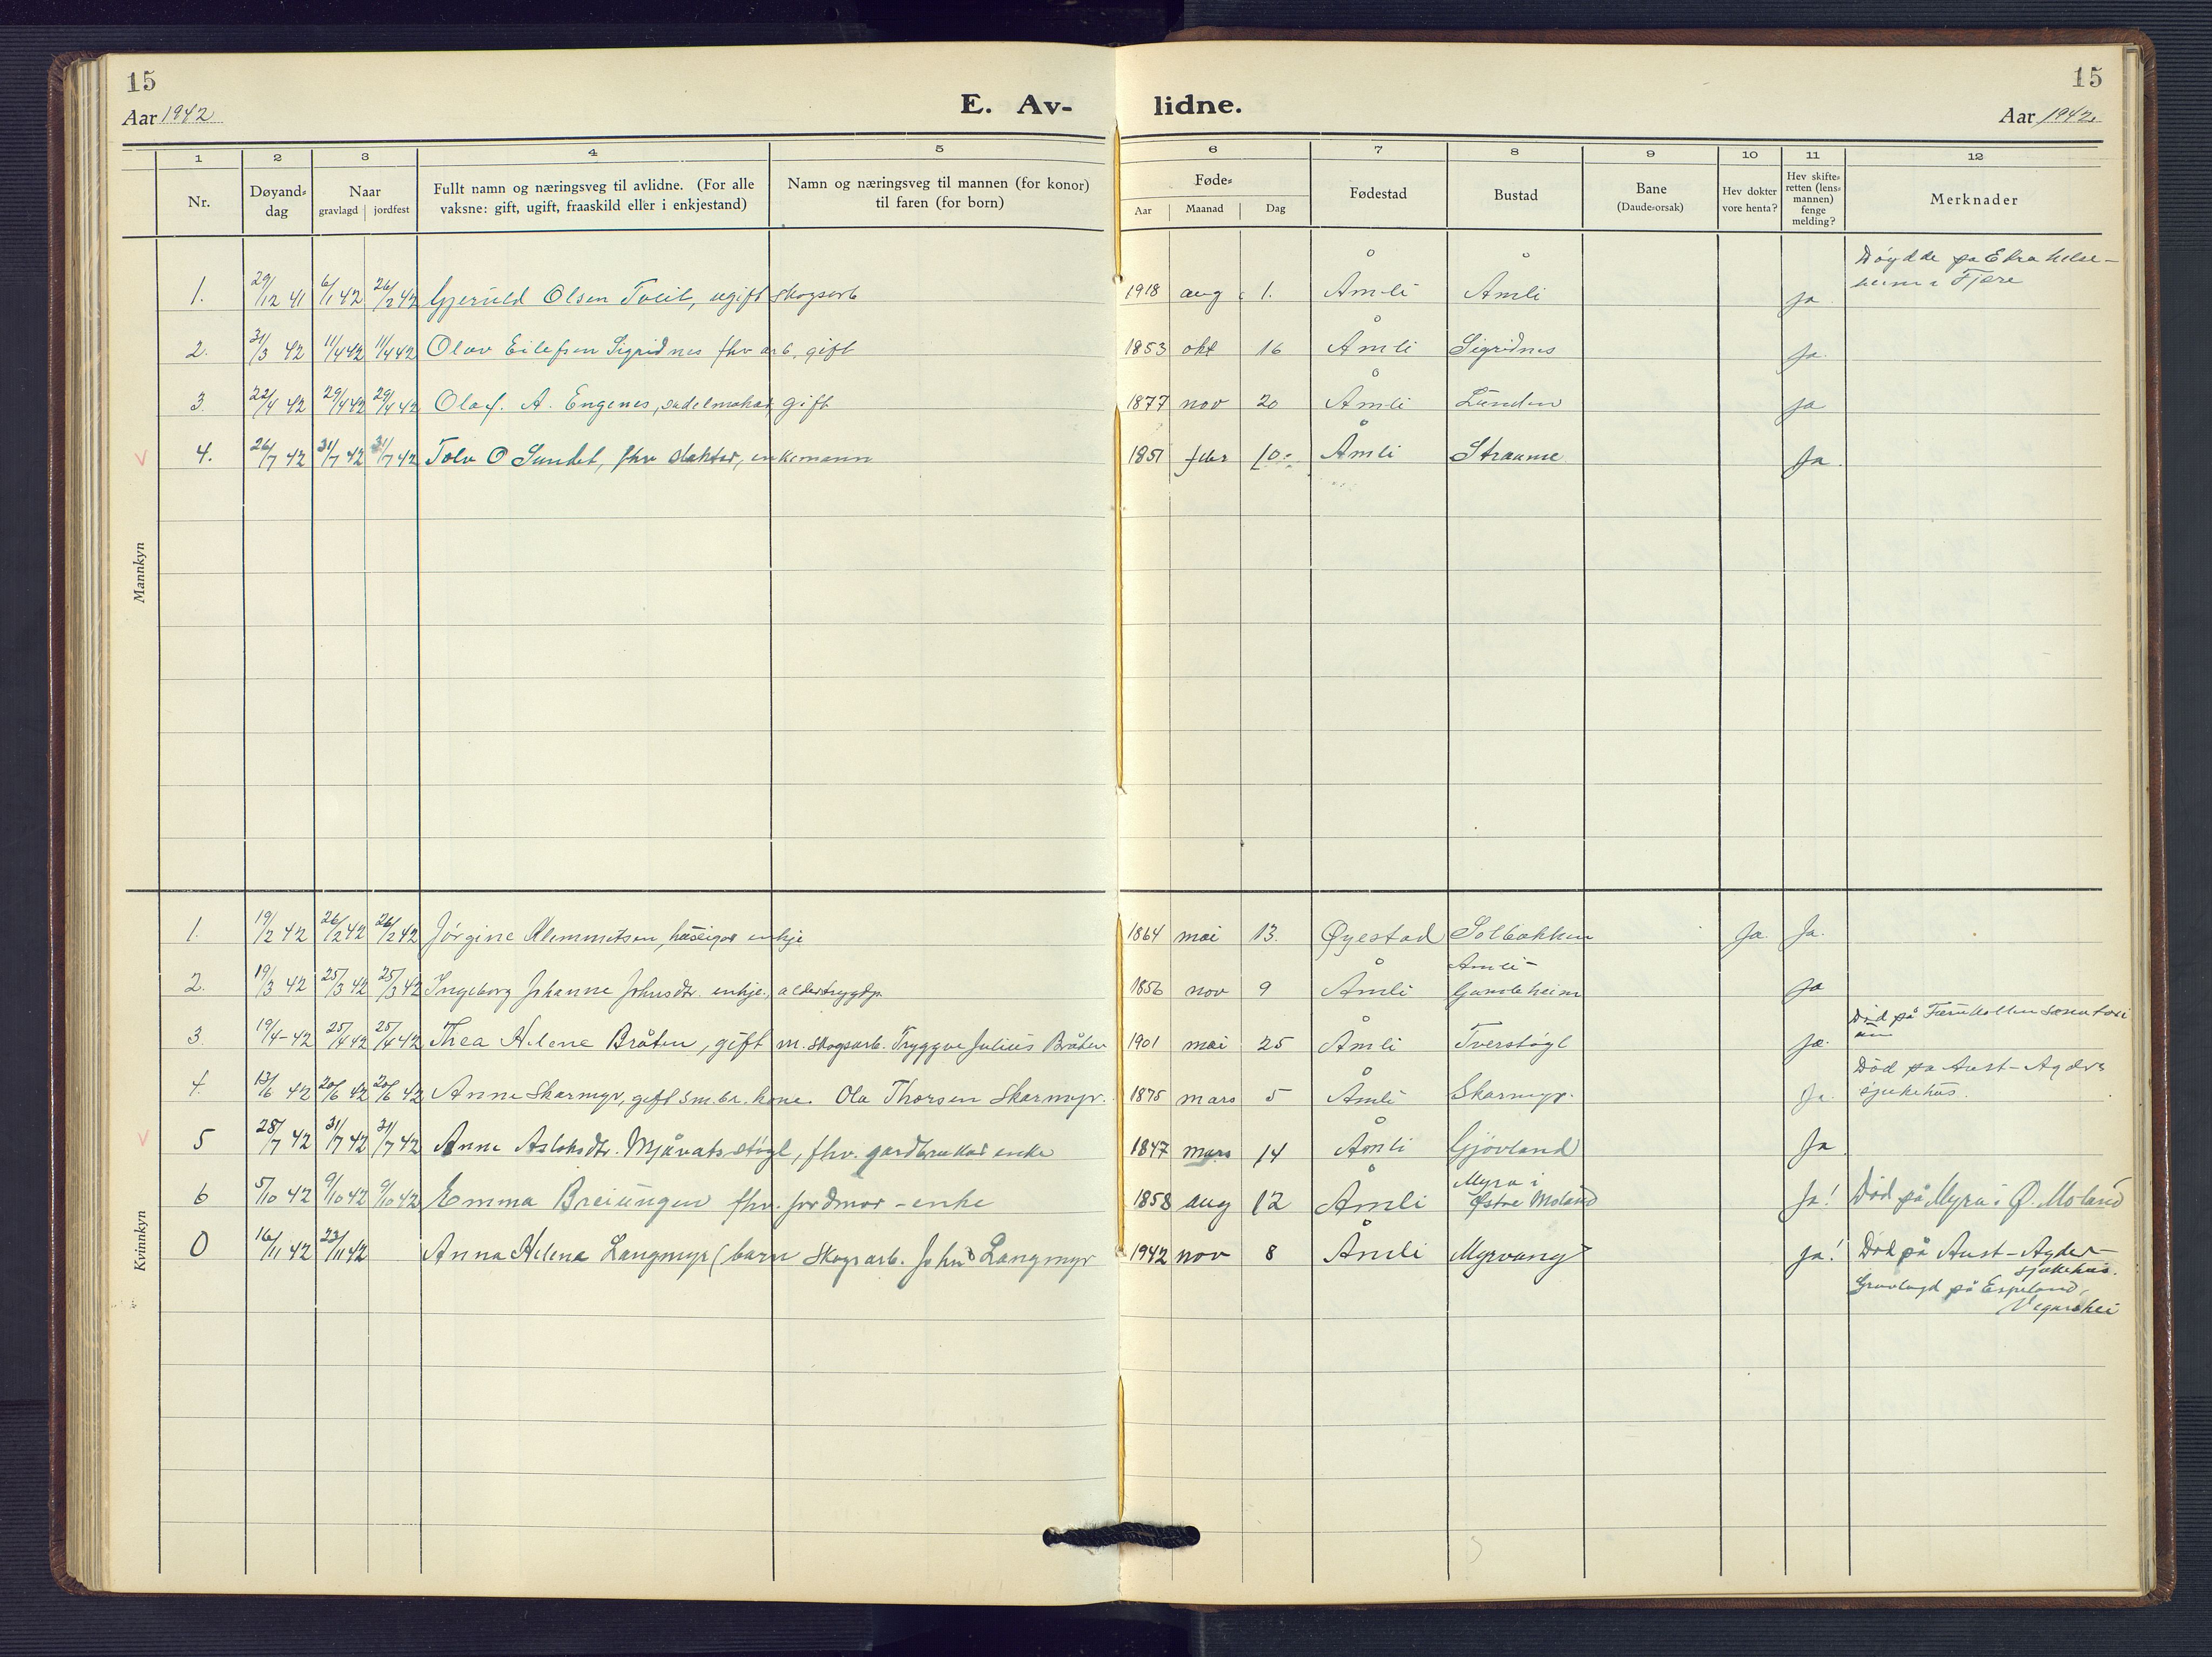 15
Aar 1942
E. Av-
lidne.
15
Aar 1942.
1 2 3 4 5 6 7 8 9 10 11 12
Nr.
Døyand-
dag
Naar
gravlagd jordfest
Fullt namn og næringsveg til avlidne. (For alle
vaksne: gift, ugift, fraaskild eller i enkjestand)
Namn og næringsveg til mannen (for konor)
til faren (for born)
Føde-
Aar Maanad Dag
Fødestad
Bustad
Bane
(Daude-orsak)
Hev dokter
vore henta?
Hev skifte-
retten (lens-
mannen)
fenge
melding?
Merknader
Mannkyn
1. 29/12 41 6/1 42 26/2 42 Gjeruld Olsen Tveit, ugift skogsarb 1918 aug 1. Åmli Åmli ja Døydde på helse-
heim i Fjære
2. 31/3 42 11/4 42 11/4 42 Olav Eilefsen Sigridnes fhv arb. gift 1853 okt 16 Åmli Sigridnes Ja.
3. 22/4 42 29/4 42 29/4 42 Olaf. A. Engenes, sadelmakar gift 1877 nov 20 Åmli Lunden ja
4. 26/7 42 31/7 42 31/7 42 Tolv O Sundet, fhv slaktar, enkemann 1851 febr 10. Åmli Straume Ja.
Kvinnkyn
1. 19/2 42 26/2 42 26/2 42 Jørgine Klemmetsen, huseigar enkje 1864 mai 13. Øyestad Solbakken Ja. Ja.
2. 19/3 42 25/3 42 25/3 42 Ingeborg Johanne Johnsdtr. enkje, alderstrygdp. 1856 nov 9 Åmli Åmli-
Gamleheim ja
3. 19/4-42 25/4 42 25/4 42 Thea Helene Bråten, gift m. skogsarb. Tryggve Julius Bråten 1901 mai 25 Åmli Tverstøyl Ja. Død på sanatori
um
4. 13/6 42 20/6 42 20/6 42 Anne Skarmyr, gift sm.br. kone. Ola Thorsen Skarmyr. 1875 mars 5 Åmli Skarmyr. Ja. Død på Aust-Agder
sjukehus.
5 28/7 42 31/7 42 31/7 42 Anne Aslaksdtr. Mjåvatsstøyl, fhv. gardbrukar enke 1847 mars 14 Åmli Gjøvland Ja
6 5/10 42 9/10 42 9/10 42 Emma Breiungen fhv. jordmor - enke 1858 aug 12 Åmli Myra i
Østre Moland Ja! Død på Myra i Ø. Moland
0 16/11 42 23/11 42 Anna Helena Langmyr (barn Skogsarb. John Langmyr 1942 nov 8 Åmli Myrvang Ja! Død på Aust-Agder
sjukehus.
Gravlagd på Espeland,
Vegårshei